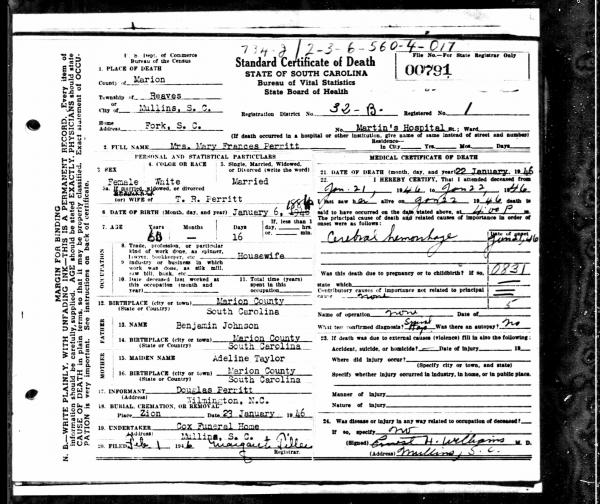 734-2 / 2-3-6-560-4-017
U. S. Dept. of Commerce
Bureau of the Census
Standard Certificate of Death
STATE OF SOUTH CAROLINA
Bureau of Vital Statistics
State Board of Health
File No.—For State Registrar Only
00791
1. PLACE OF DEATH
County of Marion
Township of Reaves
or
City of Mullins, S. C.
Registration District No. 32-B. Registered No. 1
Home Address Fork, S. C.
No. Martin's Hospital St.; Ward
(If death occurred in a hospital or other institution, give name of same instead of street and number)
Residence—
In City Yrs. Mos. Days
2. FULL NAME Mrs. Mary Frances Perritt
PERSONAL AND STATISTICAL PARTICULARS
3. SEX Female
4. COLOR OR RACE White
5. Single, Married, Widowed, or Divorced (write the word) Married
5a. If married, widowed, or divorced
(or) WIFE of T. R. Perritt
6. DATE OF BIRTH (Month, day, and year) January 6,
7. AGE Years Months Days If less than 1 day, hrs. or min.
16
OCCUPATION
8. Trade, profession, or particular kind of work done, as spinner, sawyer, bookkeeper, etc. Housewife
9. Industry or business in which work was done, as silk mill, saw mill, bank, etc.
10. Date deceased last worked at this occupation (month and year)
11. Total time (years) spent in this occupation
12. BIRTHPLACE (city or town) Marion County
(State or Country) South Carolina
FATHER
13. NAME Benjamin Johnson
14. BIRTHPLACE (city or town) Marion County
(State or Country) South Carolina
MOTHER
15. MAIDEN NAME Adeline Taylor
16. BIRTHPLACE (city or town) Marion County
(State or Country) South Carolina
17. INFORMANT Douglas Perritt
(Address) Wilmington, N.C.
18. BURIAL, CREMATION, OR REMOVAL
Place Zion Date 23 January 1946
19. UNDERTAKER Cox Funeral Home
(Address) Mullins, S. C.
20. FILED Feb 1 1946 Margaret
Registrar.
MEDICAL CERTIFICATE OF DEATH
21. DATE OF DEATH (Month, day, and year) 22 January, 1946
22. I HEREBY CERTIFY, That I attended deceased from
Jan. 21, 1946, to Jan 22, 1946
I last saw her alive on Jan 22, 1946 death is
said to have occurred on the date stated above, at 4:00 P m.
The principal cause of death and related causes of importance in order of
onset were as follows: Date of onset
Cerebral hemorrhage
Was this death due to pregnancy or to childbirth? If so, 0831
state which
Contributory causes of importance not related to principal
cause none
Name of operation none Date of
What test confirmed diagnosis? Was there an autopsy? No
23. If death was due to external causes (violence) fill in also the following:
Accident, suicide, or homicide? Date of Injury 19
Where did injury occur?
(Specify city or town, and state)
Specify whether injury occurred in industry, in home, or in public place.
Manner of injury
Nature of injury
24. Was disease or injury in any way related to occupation of deceased?
If so, specify no
(Signed) Ernest H. Williams M. D.
(Address) Mullins, S.C.
MARGIN RESERVED FOR BINDING
N. B.—WRITE PLAINLY, WITH UNFADING INK—THIS IS A PERMANENT RECORD. Every item of
information should be carefully supplied. AGE should be stated EXACTLY. PHYSICIANS should state
CAUSE OF DEATH in plain terms, so that it may be properly classified. Exact statement of OCCU-
PATION is very important. See instructions on back of certificate.